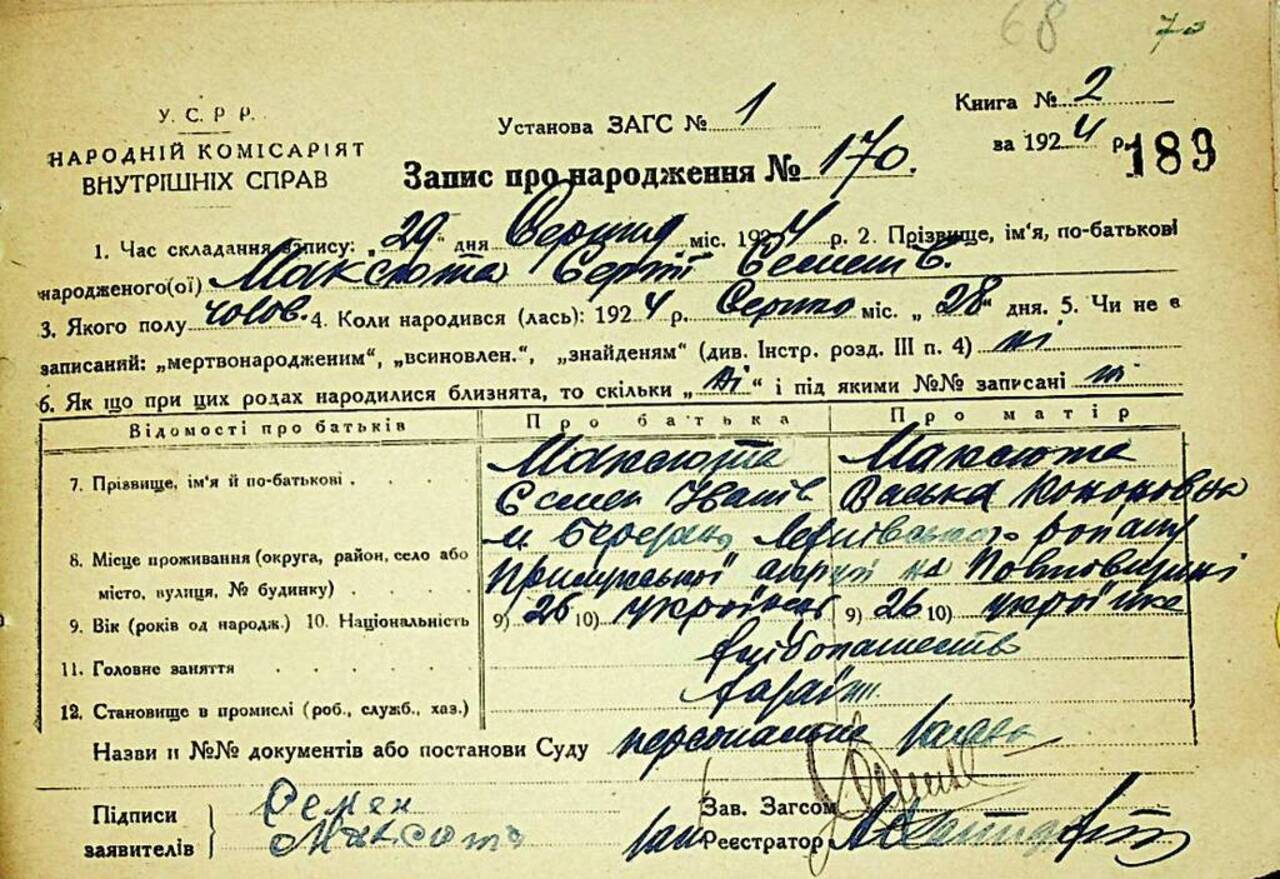 68 70
У. С. Р Р.
НАРОДНІЙ КОМІСАРІЯТ
ВНУТРІШНІХ СПРАВ
Установа ЗАГС № 1
Книга № 2
за 1924 р.
189
Запис про народження № 170.
1. Час складання запису: „29“ дня Серпня міс. 1924 р. 2. Прізвище, ім'я, по-батькові
народженого(ої) Максюта Сергій
3. Якого полу чолов. 4. Коли народився (лась): 1924 р. Серпня міс. „28“ дня. 5. Чи не є
записаний: „мертвонародженим“, „всиновлен.“, „знайденям“ (див. Інстр. розд. III п. 4) ні
6. Як що при цих родах народилися близнята, то скільки „ні“ і під якими №№ записані
Відомості про батьків Про батька Про матір
Максюта Максюта
7. Прізвище, ім'я й по-батькові . . . .
Васька
8. Місце проживання (округа, район, село або
місто, вулиця, № будинку) . . . .
Прилуцької округи на Полтавщині
9. Вік (років од народж.) 10. Національність 9) 26 10) українець 9) 26 10) українка
11. Головне заняття . . . . .
12. Становище в промислі (роб., служб., хаз.)
Назви и №№ документів або постанови Суду
Підписи
заявителів
Семен
Максюта
Зав. Загсом
Реєстратор